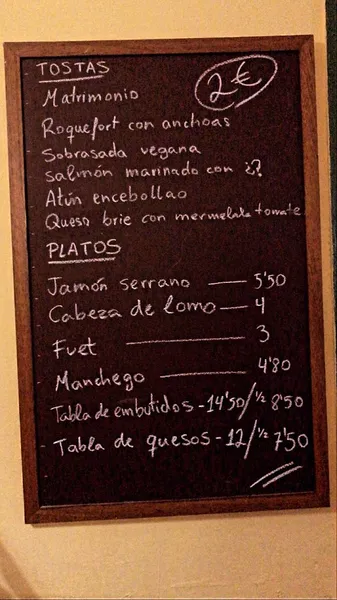 TOSTAS
2€
Matrimonio
Roquefort con anchoas
Sobrasada vegana
Salmón marinado con ¿?
Atún encebollao
Queso brie con mermelada tomate
PLATOS
Jamón serrano — 5'50
Cabeza de lomo — 4
Fuet — 3
Manchego — 4'80
Tabla de embutidos - 14'50/ 1/2 8'50
Tabla de quesos - 12/ 1/2 7'50